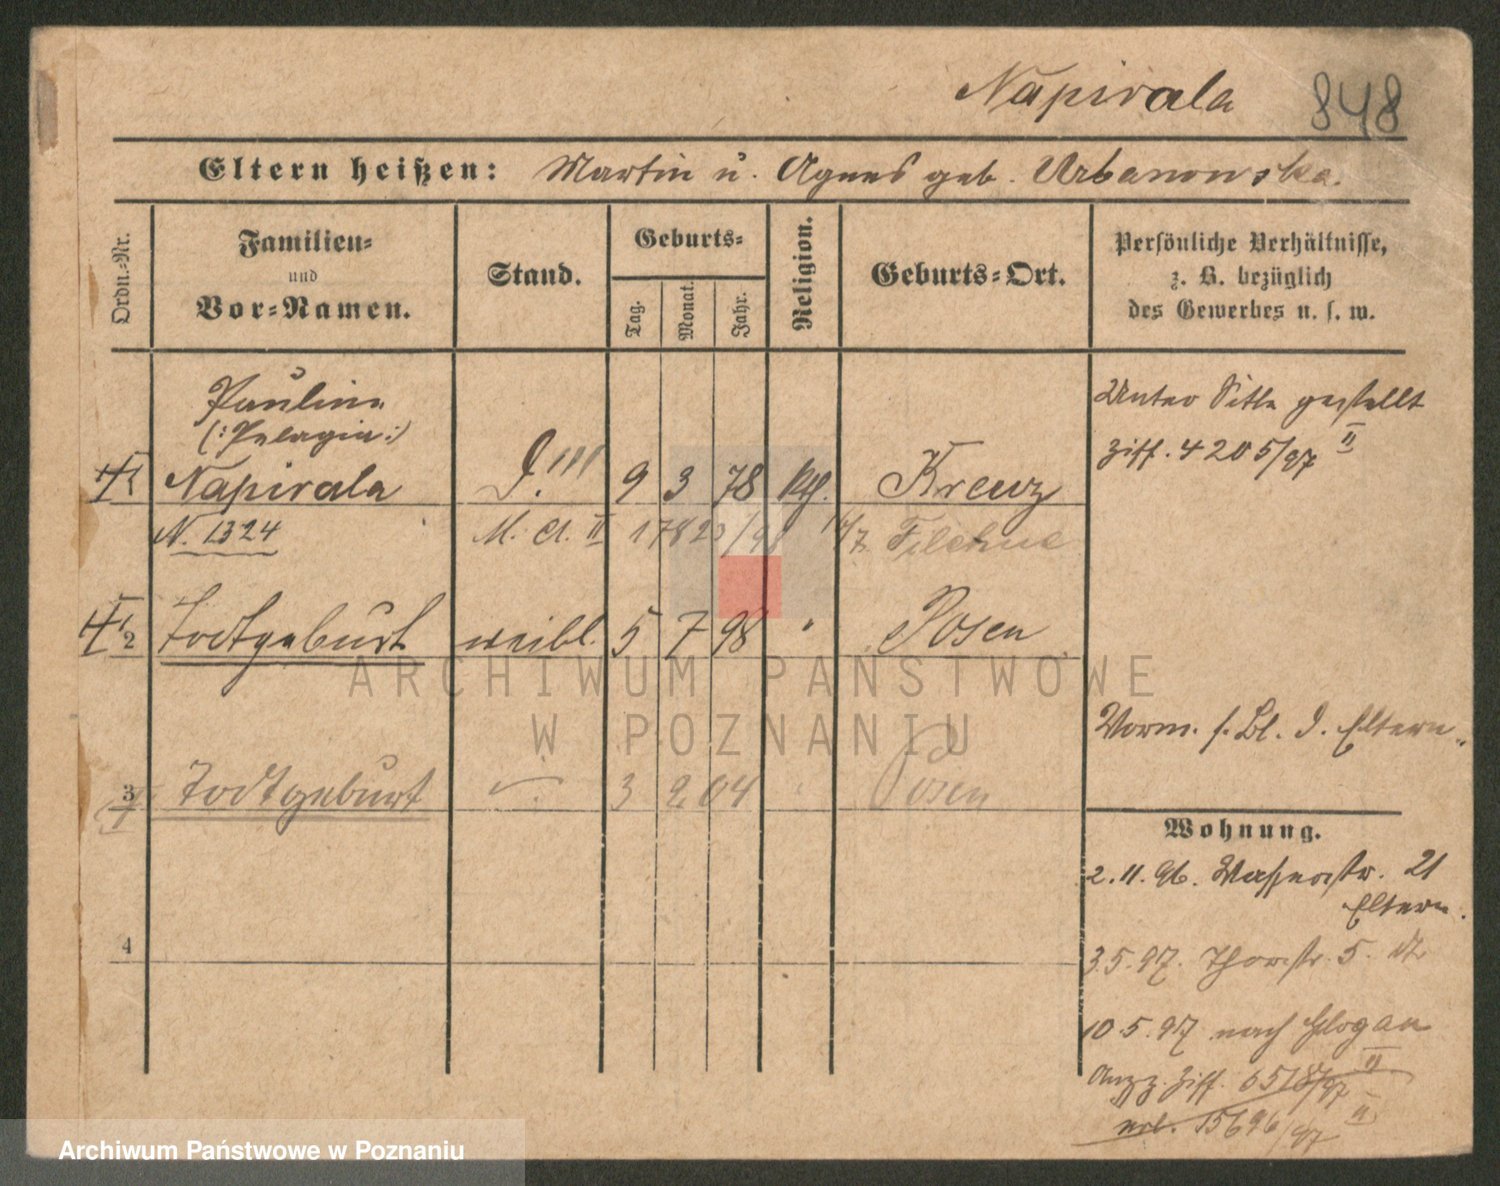 Napirala 848
Eltern heißen: Martin u. Agnes geb. Urbanowska.
Ordn.-Nr.
Familien-
und
Vor-Namen.
Stand.
Geburts-
Tag.
Monat.
Jahr.
Religion.
Geburts-Ort.
Persönliche Verhältnisse,
z. B. bezüglich
des Gewerbes u. s. w.
Pauline
(:Pelagia:)
1 Napirala D. 9 3 78 ktf. Kreuz
N. 1324 M. A. II 17823/98 14/7. Filehne
Unter Sitte gestellt
Ziff. 4205/97 II
2 Todtgeburt weibl. 5 7 98 " Posen
Vorm. s. Bl. d. Eltern.
3 Todtgeburt 3 2 04 " Posen
4
Wohnung.
2.11.96. Wasserstr. 21
Eltern.
3.5.97. Thorstr. 5.
10.5.97 nach Glogau
Ziff. 6518/97 II
15696/97 II
ARCHIWUM PAŃSTWOWE
W POZNANIU
Archiwum Państwowe w Poznaniu